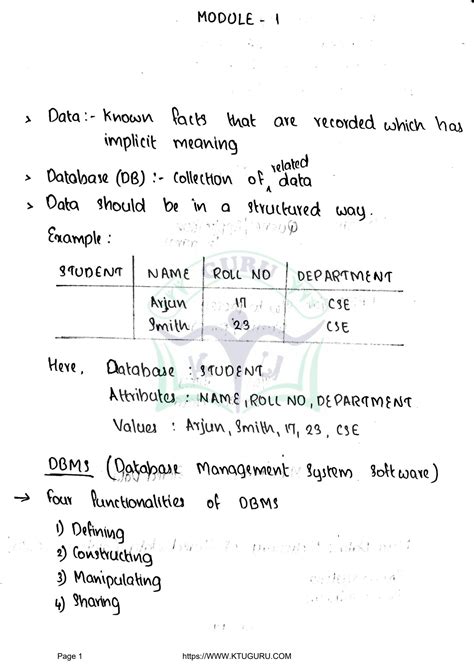 MODULE - 1
> Data :- Known facts that are recorded which has
implicit meaning
> Database (DB) :- collection of related data
> Data should be in a structured way.
Example :
STUDENT | NAME | ROLL NO | DEPARTMENT
Arjun | 17 | CSE
Smith | 23 | CSE
Here, Database : STUDENT
Attributes : NAME, ROLL NO, DEPARTMENT
Values : Arjun, Smith, 17, 23, CSE
DBMS (Database Management System Software)
→ Four Functionalities of DBMS
1) Defining
2) Constructing
3) Manipulating
4) Sharing
Page 1 https://WWW.KTUGURU.COM